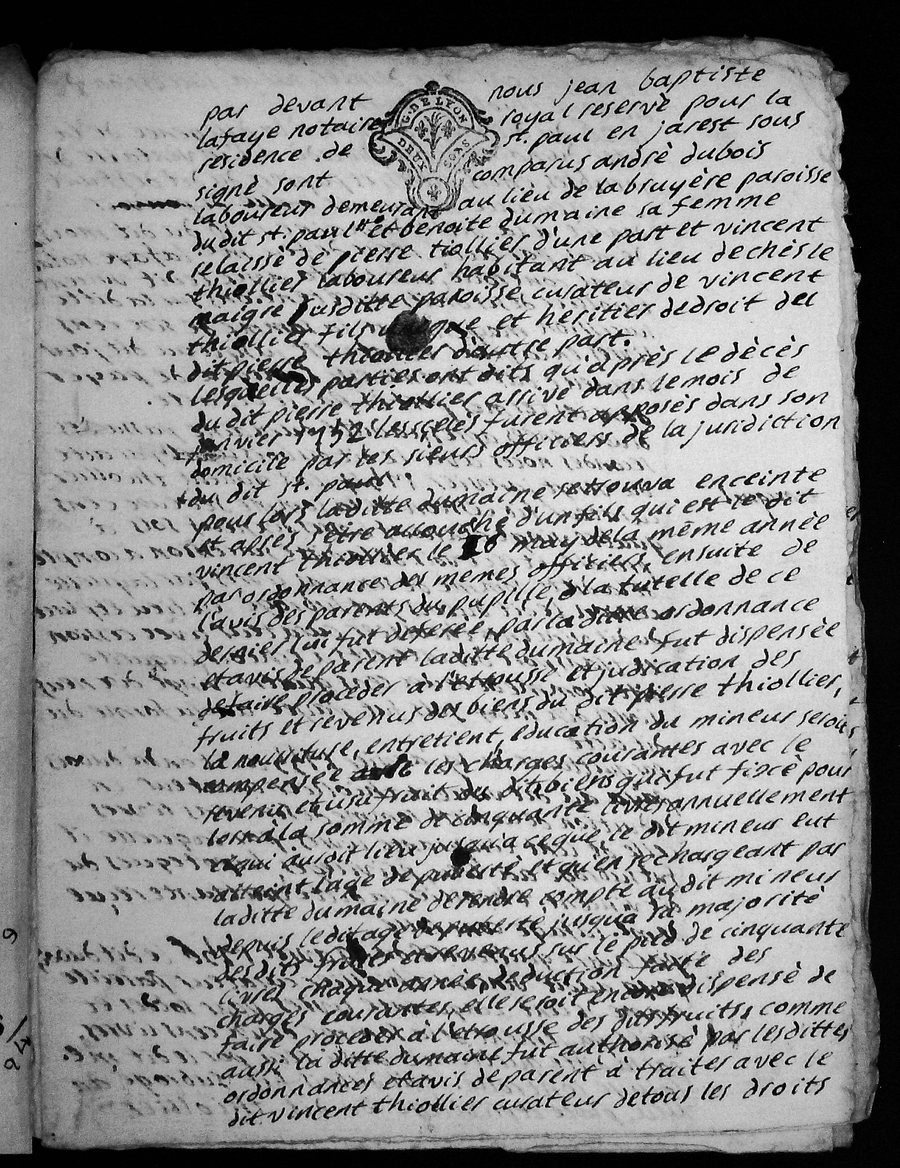 par devant nous jean baptiste
lafaye notaire royal reservè pour la
residence de st. paul en jarest sous
signè sont comparus andrè dubois
laboureur demeurant au lieu de labruyère paroisse
G. DE LYON
DEUX SOLS
dudit st. paul et benoite dumaine sa femme
relaissè de pierre tiollier d'une part et vincent
thiollier laboureur habitant au lieu de chès le
maigre susditte paroisse curateur de vincent
thiollier fils et hèritier de droit del
dit pierre thiollier d'autre part.
lesquelles parties ont dits qu'après le dècès
du dit pierre thiollier arrivè dans le mois de
janvier 1752 les scelès furent apposès dans son
domicile par les sieurs officiers de la juridiction
du dit st. paul.
pour lors laditte dumaine se trouva enceinte
et après s'être accouchè d'un fils qui est le dit
vincent thiollier le 16 may de la même annèe
par ordonnance des mêmes officiers, ensuite de
l'avis des parents du pupille la tutelle de ce
dernier lui fut deferèe, par la ditte ordonnance
et avis de parent laditte dumaine fut dispensèe
de faire procèder à l'etrousse et judication des
fruits et revenus des biens du dit pierre thiollier,
la nourriture, entretient, education du mineur seroit
compensèe les charges courantes avec le
revenu et usufruit des dits biens qui fut fixè pour
lors à la somme de cinquante livres annuellement
ce qui auroit lieu jusqu'a ce que le dit mineur eut
atteint l'age de pubertè, et qu'en rechargeant par
laditte dumaine de rendre compte au dit mineur
depuis le dit age de puberte jusqu'à sa majorité
des dits fruits et revenus sur le pied de cinquante
livres chaque annèe, deduction faite des
charges courantes, elle seroit encore dispensè de
faire proceder à l'etrousse des dits fruits, comme
aussi la ditte dumaine fut authorisè par les dittes
ordonnances et avis de parent à traiter avec le
dit vincent thiollier curateur de tous les droits